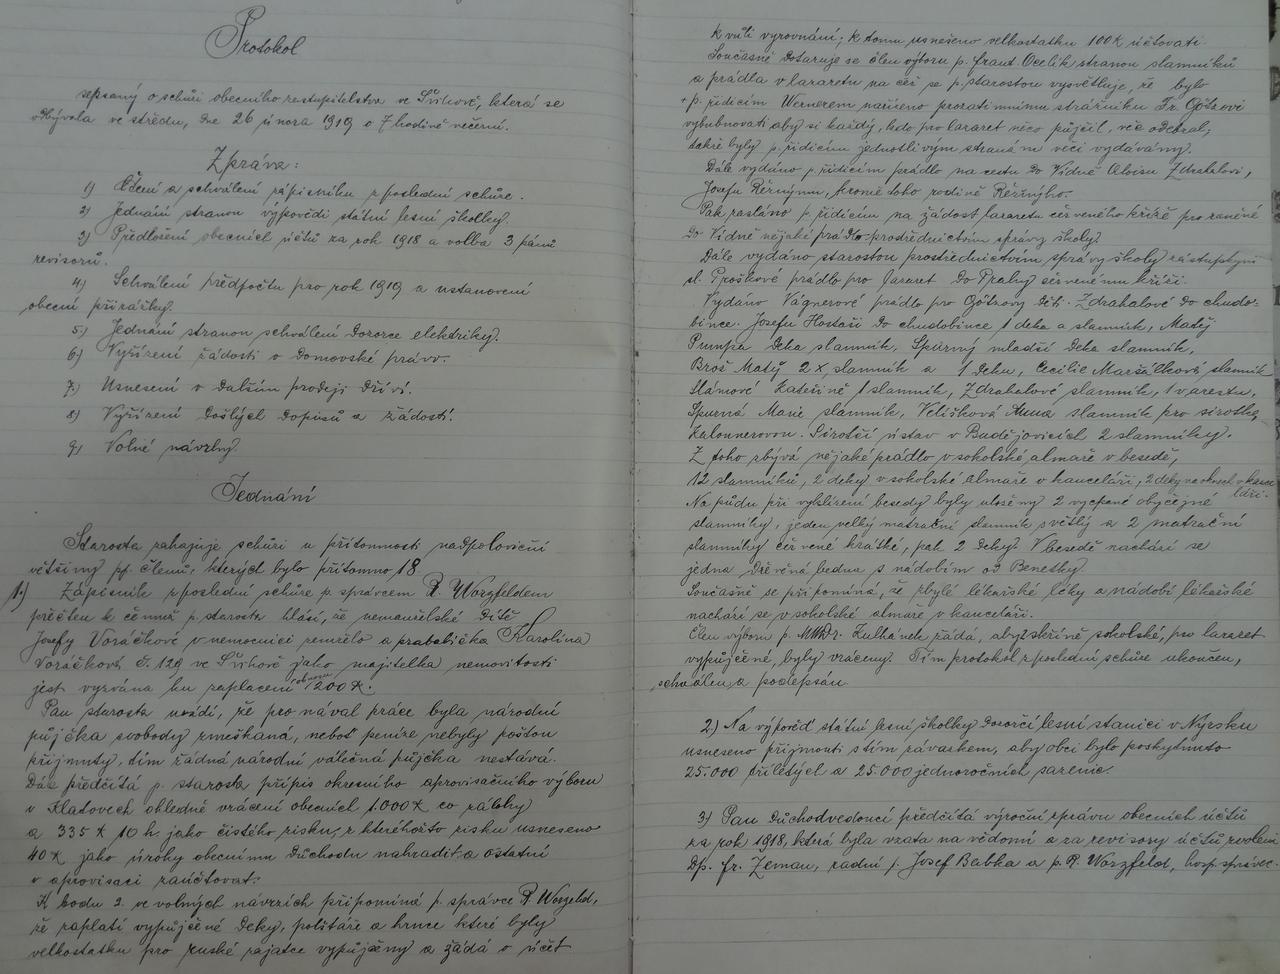 Protokol
sepsaný o schůzi obecního zastupitelstva ve Švihově, která se
odbývala ve středu, dne 26 února 1919 o 7 hodině večerní.
Zpráva:
1) Čtení a schválení zápisníku z poslední schůze.
2) Jednání stranou výpovědi státní lesní školky.
3) Předložení obecních účtů za rok 1918 a volba 3 pánů
revisorů.
4) Schválení předpočtu pro rok 1919 a ustanovení
obecní přirážky.
5) Jednání stranou schválení dozorce elektriky.
6) Vyřízení žádosti o domovské právo.
7) Usnesení o dalším prodeji dříví.
8) Vyřízení došlých dopisů a žádostí.
9) Volné návrhy.
Jednání
Starosta zahajuje schůzi u přítomnosti nadpoloviční
většiny pp. členů, kterých bylo přítomno 18
1.) Zápisník z poslední schůze p. správcem R. Worzfeldem
přečten k čemuž p. starosta hlásí, že nemanželské dítě
Josefy Voráčkové v nemocnici zemřelo a prababička Karolina
Voráčková č. 129 ve Švihově jako majitelka nemovitosti
jest vyzvána ku zaplacení obnosu 200 K.
Pan starosta uvádí, že pro nával práce byla národní
půjčka svobody zmeškaná, neboť peníze nebyly poštou
přijmuty, tím žádná národní válečná půjčka nestává.
Dále předčítá p. starosta přípis okresního aprovisačního výboru
v Klatovech ohledně vrácení obecních 1.000 K co zálohy
a 335 K 10 h. jako čistého zisku, z kteréhožto zisku usneseno
40 K jako úroky obecnímu důchodu nahradit a ostatní
v aprovisaci zaúčtovat.
K bodu 2. ve volných návrzích připomíná p. správce R. Worzfeld,
že zaplatí vypůjčené deky, polštáře a hrnce které byly
velkostatku pro ruské zajatce vypůjčeny a žádá o účet
k vůli vyrovnání; k tomu usneseno velkostatku 100 K účtovati.
Současně dotazuje se člen výboru p. Frant. Ocelík stranou slamníků
a prádla v lazaretu na čež se p. starostou vysvětluje, že bylo
+ p. řídicím Wernerem nařízeno prozatimnímu strážníku Fr. Götzovi
vybubnovati aby si každý, kdo pro lazaret něco půjčil, věc odebral,
také byly p. řídicím jednotlivým stranám věci vydávány.
Dále vydáno p. řídicím prádlo na cestu do Vídně Aloisu Zdrahalovi,
Josefu Režnýmu, kromě toho rodině Režnýho.
Pak zasláno p. řídicím na žádost lazaretu červeného kříže pro raněné
do Vídně nějaké prádlo prostřednictvím správy školy.
Dále vydáno starostou prostřednictvím správy školy zástupkyni
sl. Proškové prádlo pro lazaret do Prahy červenému kříži.
Vydáno Vágnerové prádlo pro Götzovy děti. Zdrahalové do chudo-
bince. Josefu Hostaši do chudobince 1 deka a slamník, Matěj
Pumpa deka slamník, Spurný mladší deka slamník,
Brož Matěj 2 X slamník a 1 deku, Cecilie Maršálková slamník
Slámové Kateřině 1 slamník, Zdrahalové slamník, 1 v arestu,
Spurná Marie slamník, Velíšková Anna slamník pro sirotka
Kalounerovou. Sirotčí ústav v Budějovicích 2 slamníky.
Z toho zbývá nějaké prádlo v sokolské almaře v besedě,
12 slamníků, 2 deky v sokolské almaře v kanceláři, 2 deky na oknech v kance-
láři.
Na půdu při vyklízení besedy byly uloženy 2 vycpané obyčejné
slamníky, jeden velký matrační slamník světlý a 2 matrační
slamníky červené krátké, pak 2 deky. V besedě nachází se
jedna dřevěná bedna s nádobím od Benetky.
Současně se připomíná, že zbylé lékařské léky a nádobí lékařské
nachází se v sokolské almaře v kanceláři.
Člen výboru p. MUDr. Zulhánek žádá, aby skříně sokolské, pro lazaret
vypůjčené, byly vráceny. Tím protokol z poslední schůze ukončen,
schválen a podepsán
2) Na výpověď státní lesní školky dozorčí lesní stanici v Nýrsku
usneseno přijmouti s tím závazkem, aby obci bylo poskytnuto
25.000 tříletých a 25.000 jednoročních sazenic.
3) Pan důchodvedoucí předčítá výroční správu obecních účtů
za rok 1918, která byla vzata na vědomí a za revisory účtů zvoleni
Dp. Fr. Zeman, radní p. Josef Babka a p. R. Worzfeld, hosp. správce.